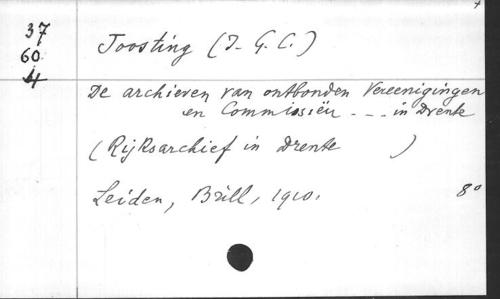 37
60
4
Joosting (J. G. C.)
De archieven van ontbonden Vereenigingen
en Commissiën - - - in Drente
(Rijksarchief in Drente )
Leiden, Brill, 1910. 8°